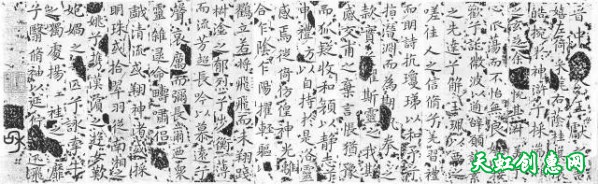 晉中書令王獻
嬉左倚右蔭桂旗
皓腕於神滸兮採湍
心振蕩而不怡無良
懽兮託微波以通辭願
之先達兮解玉珮而
嗟佳人之信脩兮羌習禮
而明詩抗瓊珶以和予兮
指潛淵而為期執眷眷之
款實兮懼斯靈之我欺
感交甫之棄言悵猶豫
而狐疑收和顏以靜志兮
申禮防以自持於是洛靈
感焉徙倚彷徨神光離
合乍陰乍陽擢輕軀以
鶴立若將飛而未翔踐
椒塗之郁烈兮步蘅薄
而流芳超長吟以慕遠兮
聲哀厲而彌長爾乃眾
靈雜遝命疇嘯侶或
戲清流或翔神渚或採
明珠或拾翠羽從南湘之
姚兮攜漢濱之遊女歎
媧之無匹兮詠牽牛
之獨處揚輕袿之猗靡
兮翳脩袖以延佇體迅飛
天虹创意网